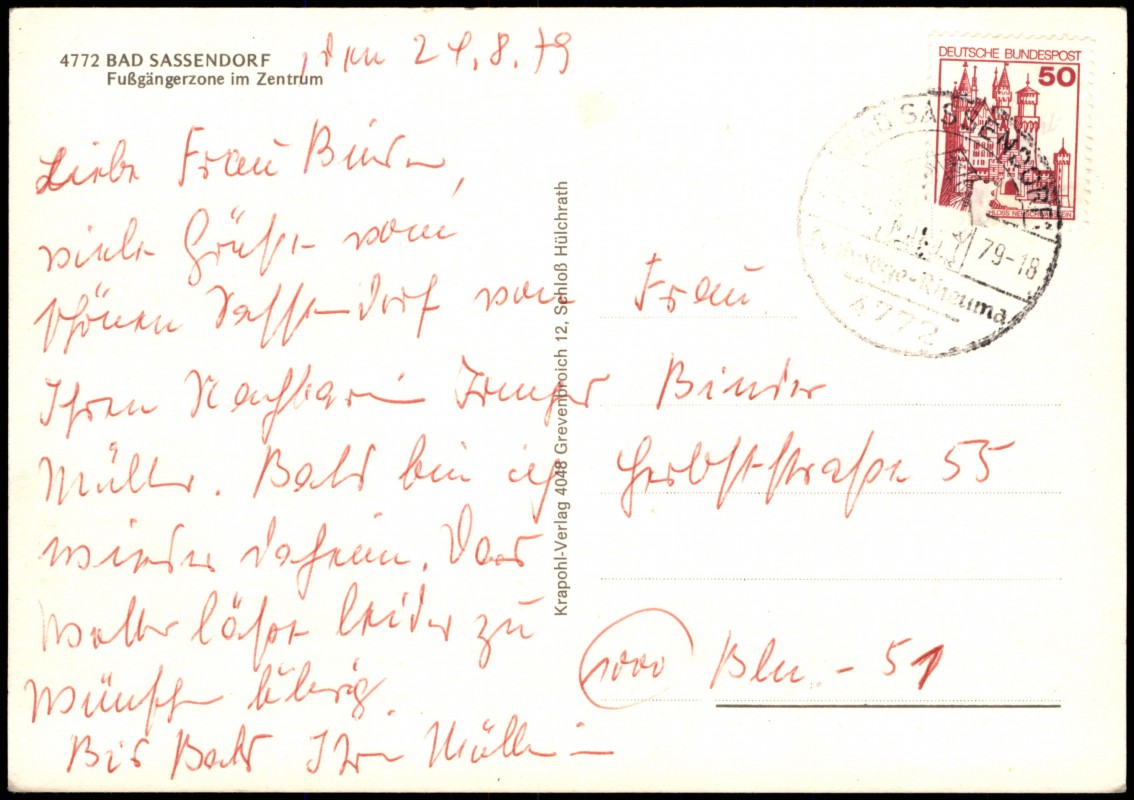 4772 BAD SASSENDORF
Fußgängerzone im Zentrum
, den 21.8.79
Liebe Frau Binder,
viele Grüße vom
schönen Sassendorf von
Ihren Nachbarin
Müller. Bald bin ich
wieder daheim. Das
Wetter läßt leider zu
wünschen übrig.
Bis Bald Ihre Müllerin
Krapohl-Verlag 4048 Grevenbroich 12, Schloß Hülchrath
DEUTSCHE BUNDESPOST
50
SCHLOSS NEUSCHWANSTEIN
BAD SASSENDORF
79-18
Rheuma
4772
Frau
Binder
Herbststraße 55
1000 Bln.-51